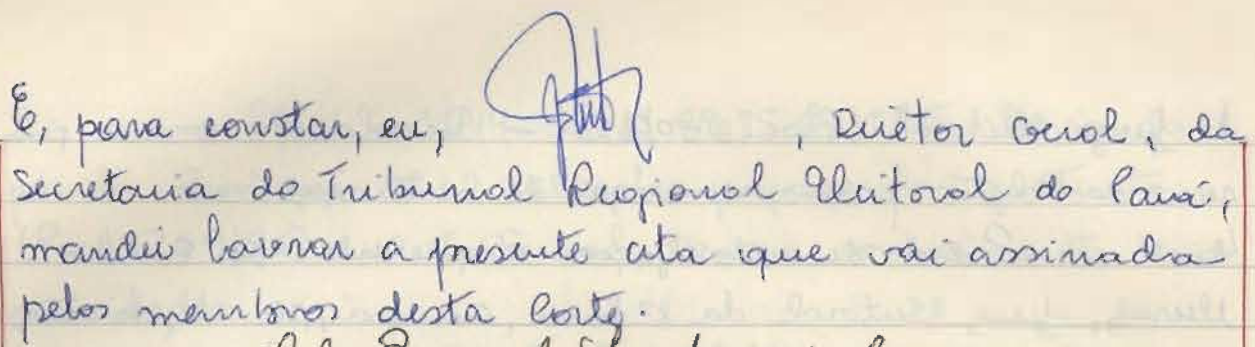 E, para constar, eu, , Diretor Geral, da
Secretaria do Tribunal Regional Eleitoral do Pará,
mandei lavrar a presente ata que vai assinada
pelos membros desta Corte.